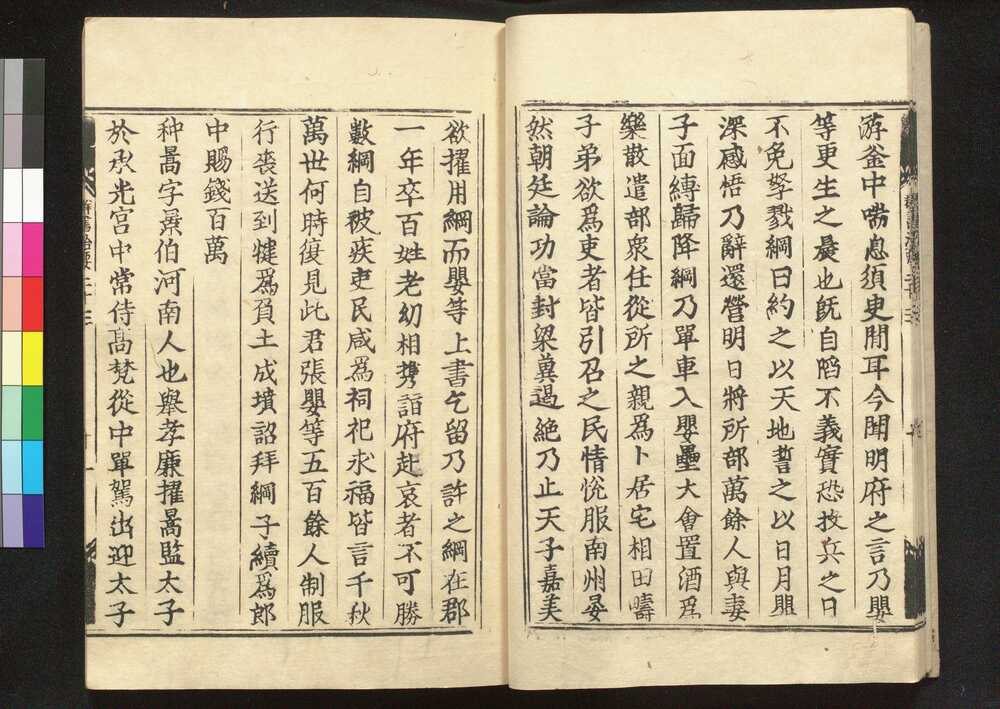 游釜中喘息須臾閒耳今聞明府之言乃嬰
等更生之晨也旣自陷不義實恐投兵之日
不免孥戮綱曰約之以天地誓之以日月嬰
深感悟乃辭還營明日將所部萬餘人與妻
子面縛歸降綱乃單車入嬰壘大會置酒爲
樂散遣部衆任從所之親爲卜居宅相田疇
子弟欲爲吏者皆引召之民情悅服南州晏
然朝廷論功當封梁冀遏絕乃止天子嘉美
欲擢用綱而嬰等上書乞留乃許之綱在郡
一年卒百姓老幼相携詣府赴哀者不可勝
數綱自被疾吏民咸爲祠祀求福皆言千秋
萬世何時復見此君張嬰等五百餘人制服
行喪送到犍爲負土成墳詔拜綱子續爲郎
中賜錢百萬
种暠字景伯河南人也舉孝廉擢暠監太子
於承光宮中常侍高梵從中單駕出迎太子